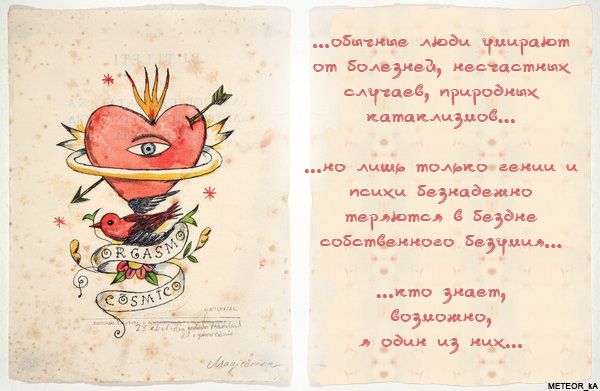 ORGASMO
COSMICO
UNIVERSAL
Magicomora
...обычные люди умирают
от болезней, несчастных
случаев, природных
катаклизмов...
...но лишь только гении и
психи безнадежно
теряются в бездне
собственного безумия...
...кто знает,
возможно,
я один из них...
METEOR_kA